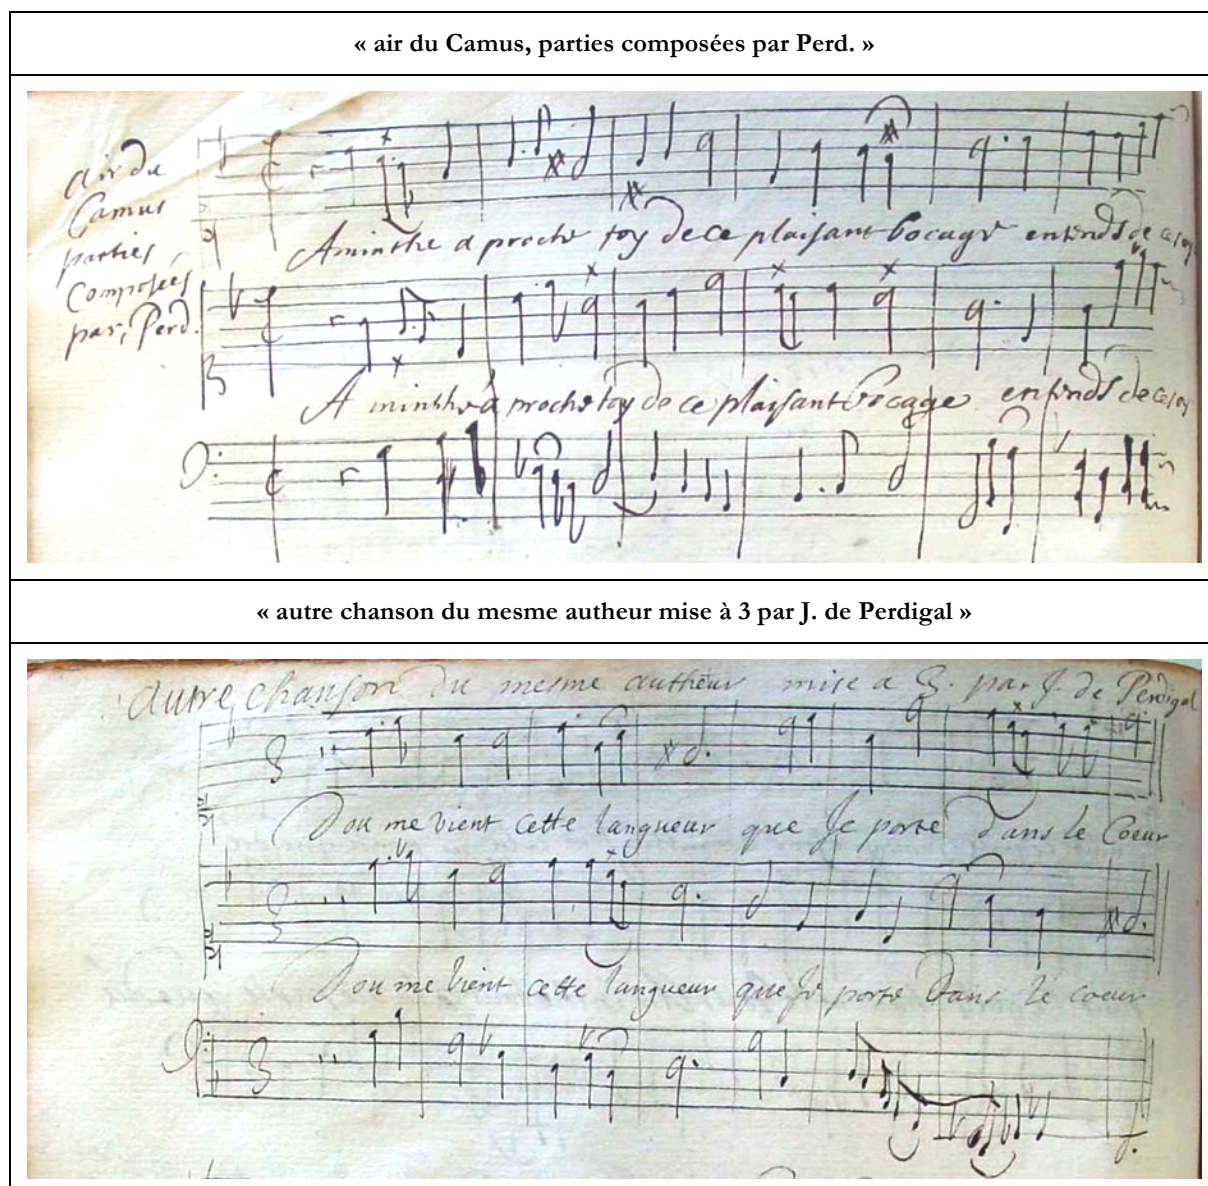 « air du Camus, parties composées par Perd. »
air du
Camus
parties
Composées
par, Perd.
Aminthe a proche toy de ce plaisant bocage entends de ce
Aminthe a proche toy de ce plaisant bocage entends de ce
« autre chanson du mesme autheur mise à 3 par J. de Perdigal »
autre chanson du mesme autheur mise a 3. par J. de Perdigal
Dou me vient cette langueur que Je porte dans le Coeur
Dou me vient cette langueur que Je porte Dans le coeur